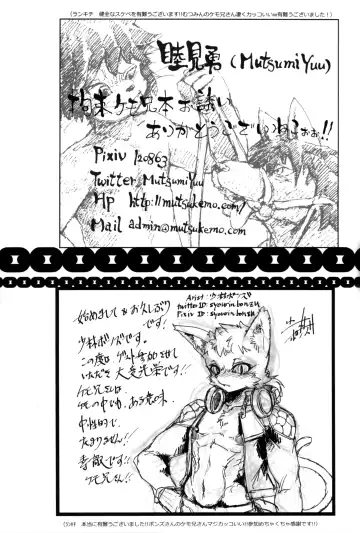 (ランキチ　健全なスケベを有難うございます!!むつみんのケモ兄さん凄くカッコいいw有難うございました!)
睦見勇 (MutsumiYuu)
拘束ケモ兄本お誘い
ありがとうございぃねこぉぉ!!
Pixiv 120863
Twitter MutsumiYuu
Hp http://mutsukemo.com/
Mail admin@mutsukemo.com
Arist:少林ボーズ
twitterID:syowrinbonzu
Pixiv ID:syowrinbonzu
始めましてorお久しぶり
です!
少林ボンズです。
この度はゲスト参加させて
いただき大変光栄です!!
ケモ兄さんは
中性的で
たまりません!!
素敵です!!
ケモ兄さん!!
(ﾗﾝｷﾁ　本当に有難うございました!!ボンズさんのケモ兄さんマジカッコいい!!参加めちゃくちゃ感謝です!!)